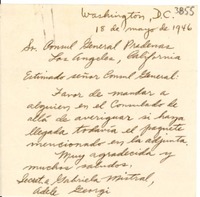 3855
Washington, D.C.
18 de mayo de 1946
Sr. Consul General Pradenas
Los Angeles, California
Estimado señor Consul General:
Favor de mandar a
alguien en el Consulado de
allá de averiguar si haya
llegado todavía el paquete
mencionado en la adjunta.
Muy agradecida y
muchos saludos.
Gabriela Mistral,
Adela Georgi